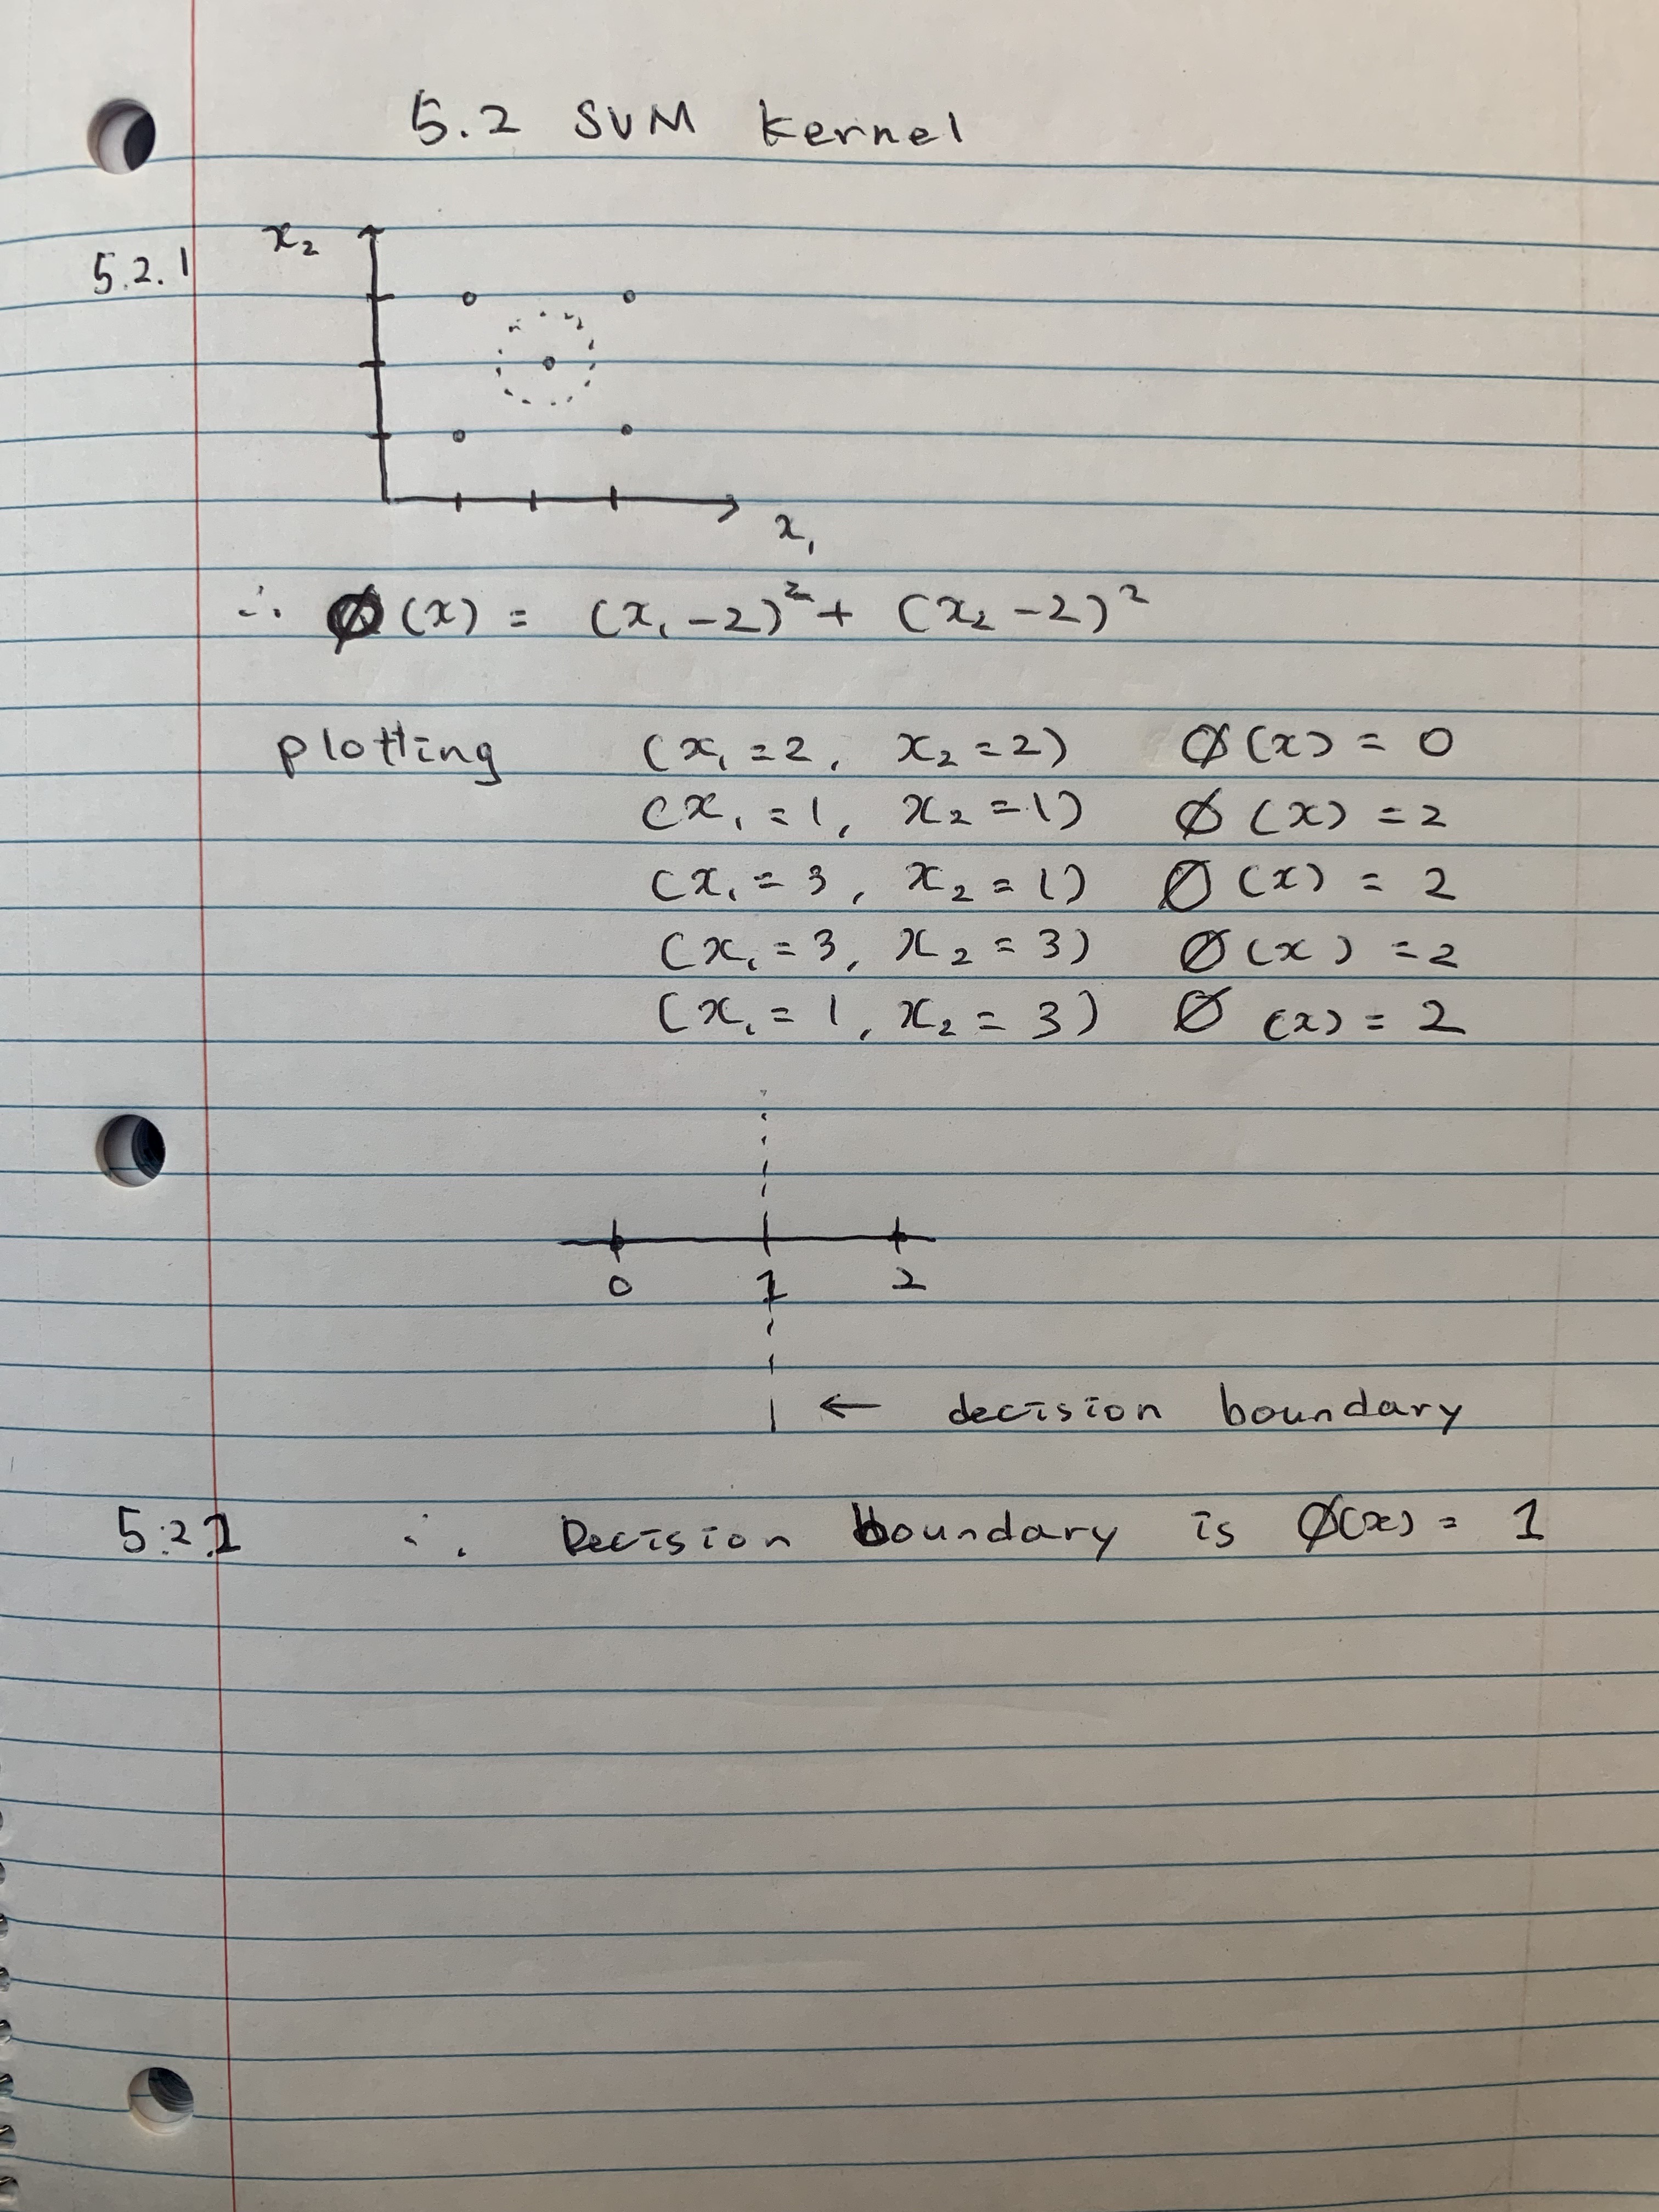 5.2 SVM Kernel
5.2.1
x₂
x₁
∴ ∅(x) = (x₁ -2)² + (x₂ -2)²
plotting (x₁ = 2, x₂ = 2) ∅(x) = 0
(x₁ = 1, x₂ = 1) ∅(x) = 2
(x₁ = 3, x₂ = 1) ∅(x) = 2
(x₁ = 3, x₂ = 3) ∅(x) = 2
(x₁ = 1, x₂ = 3) ∅(x) = 2
0 1 2
← decision boundary
5.2.2 ∴ Decision boundary is ∅(x) = 1